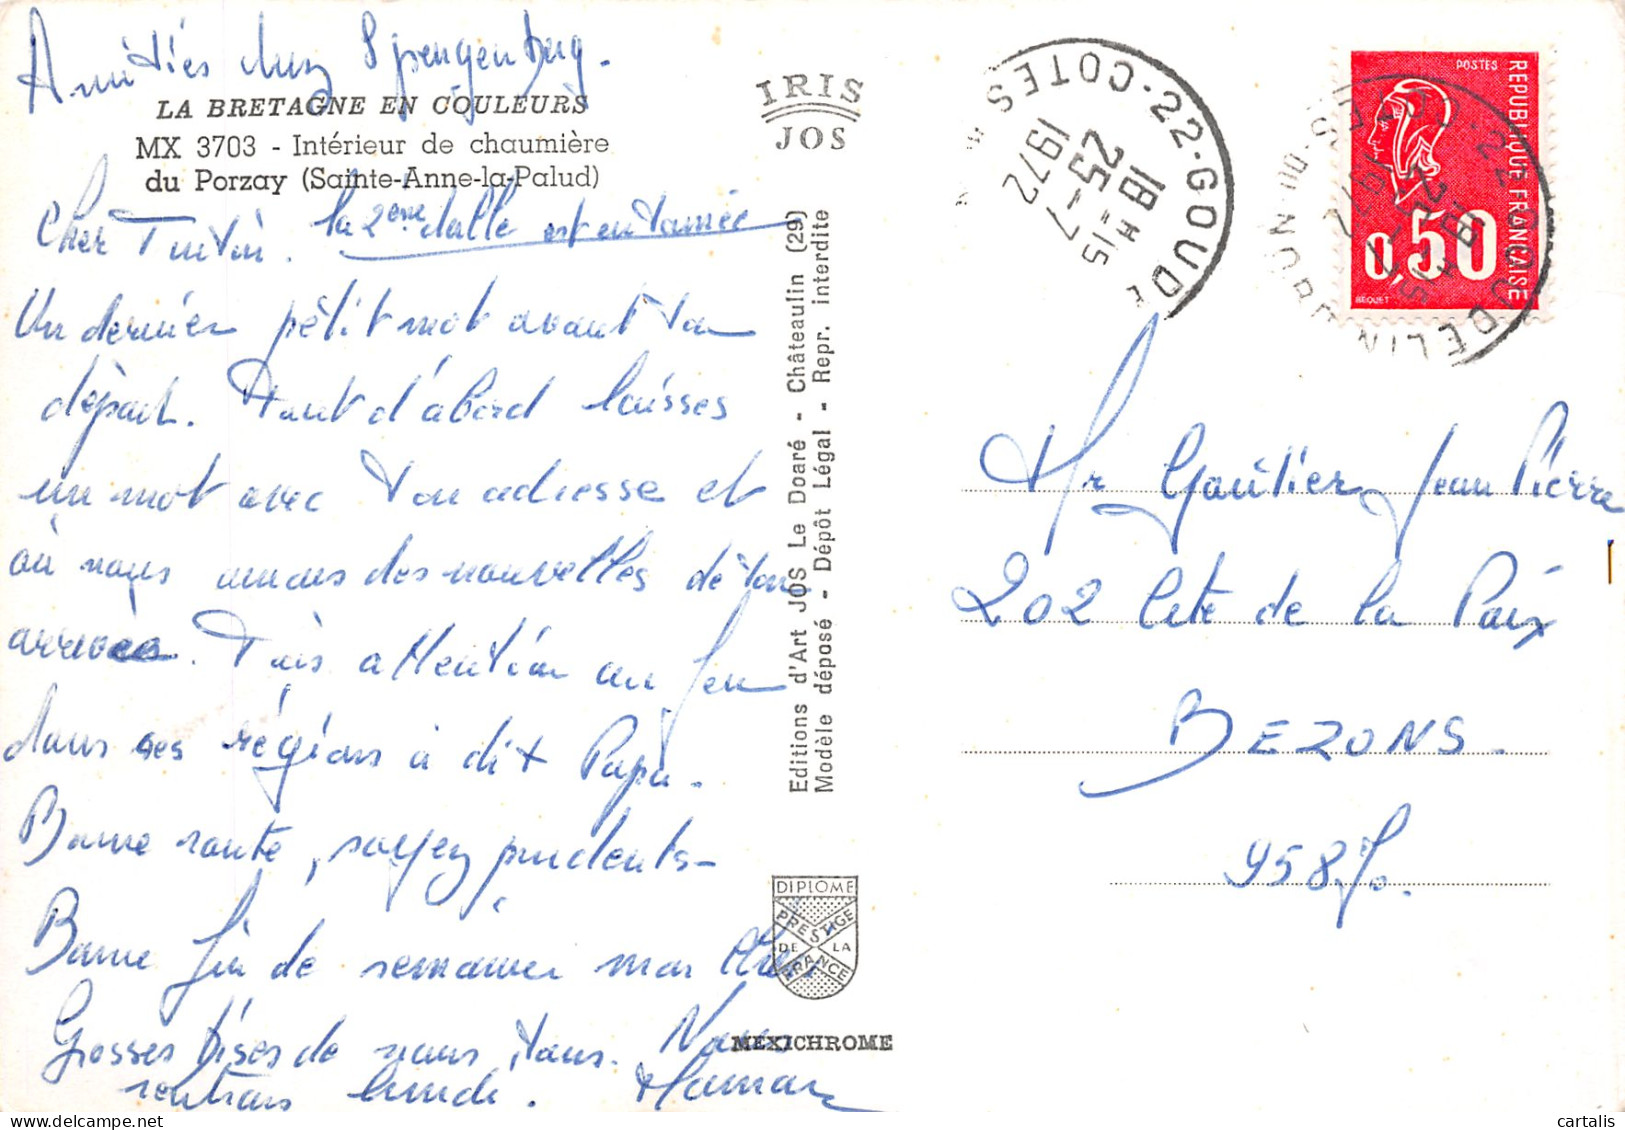 Amitiés chez Spengenberg.
LA BRETAGNE EN COULEURS
MX 3703 - Intérieur de chaumière
du Porzay (Sainte-Anne-la-Palud)
IRIS
JOS
Cher Tintin. la 2ème dalle est entamée
Un dernier pétit mot avant ton
départ. Tout d'abord laisses
un mot avec ton adresse et
où nous aurons des nouvelles de ton
arrivée. Très attention au feu
dans ses régions à dit Papa.
Bonne santé, soyez prudents-
Bonne fin de semaine mon
Grosses bises de nous tous. Nous
rentrons lundi. Maman
Editions d'Art JOS Le Doaré - Châteaulin (29)
Modèle déposé - Dépôt Légal - Repr. interdite
DIPLOME
PRESTIGE
DE LA
FRANCE
MEXICHROME
22-GOUDELIN
COTES
18 H 15
25-7
1972
POSTES
REPUBLIQUE FRANÇAISE
0,50
BEQUET
22-GOUDELIN
Mr Gautier Jean Pierre
202 Cité de la Paix
BEZONS.
95870.
cartalis